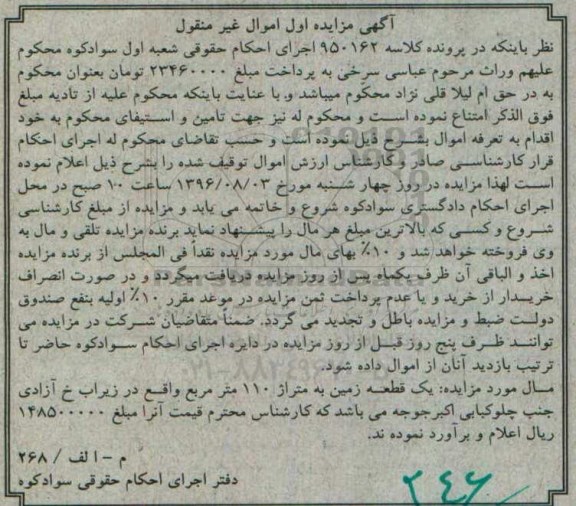 آگهی مزایده اول اموال غیر منقول
نظر باینکه در پرونده کلاسه ۹۵۰۱۶۲ اجرای احکام حقوقی شعبه اول سوادکوه محکوم
علیهم وراث مرحوم عباسی سرخی به پرداخت مبلغ ۲۳۴۶۰۰۰۰ تومان بعنوان محکوم
به در حق ام لیلا قلی نژاد محکوم میباشد و با عنایت باینکه محکوم علیه از تادیه مبلغ
فوق الذکر امتناع نموده است و محکوم له نیز جهت تامین و استیفای محکوم به خود
اقدام به تعرفه اموال بشرح ذیل نموده است و حسب تقاضای محکوم له اجرای احکام
قرار کارشناسی صادر و کارشناس ارزش اموال توقیف شده را بشرح ذیل اعلام نموده
است لهذا مزایده در روز چهار شنبه مورخ ۱۳۹۶/۰۸/۰۳ ساعت ۱۰ صبح در محل
اجرای احکام دادگستری سوادکوه شروع و خاتمه می یابد و مزایده از مبلغ کارشناسی
شروع و کسی که بالاترین مبلغ هر مال را پیشنهاد نماید برنده مزایده تلقی و مال به
وی فروخته خواهد شد و ۱۰٪ بهای مال مورد مزایده نقداً فی المجلس از برنده مزایده
اخذ و الباقی آن ظرف یکماه پس از روز مزایده دریافت میگردد و در صورت انصراف
خریدار از خرید و یا عدم پرداخت ثمن مزایده در موعد مقرر ۱۰٪ اولیه بنفع صندوق
دولت ضبط و مزایده باطل و تجدید می گردد. ضمناً متقاضیان شرکت در مزایده می
توانند ظرف پنج روز قبل از روز مزایده در دایره اجرای احکام سوادکوه حاضر تا
ترتیب بازدید آنان از اموال داده شود.
مال مورد مزایده: یک قطعه زمین به متراژ ۱۱۰ متر مربع واقع در زیراب خ آزادی
جنب چلوکبابی اکبرجوجه می باشد که کارشناس محترم قیمت آنرا مبلغ ۱۴۸۵۰۰۰۰۰
ریال اعلام و برآورد نموده ند.
م - الف / ۲۶۸
دفتر اجرای احکام حقوقی سوادکوه
۲۴۶